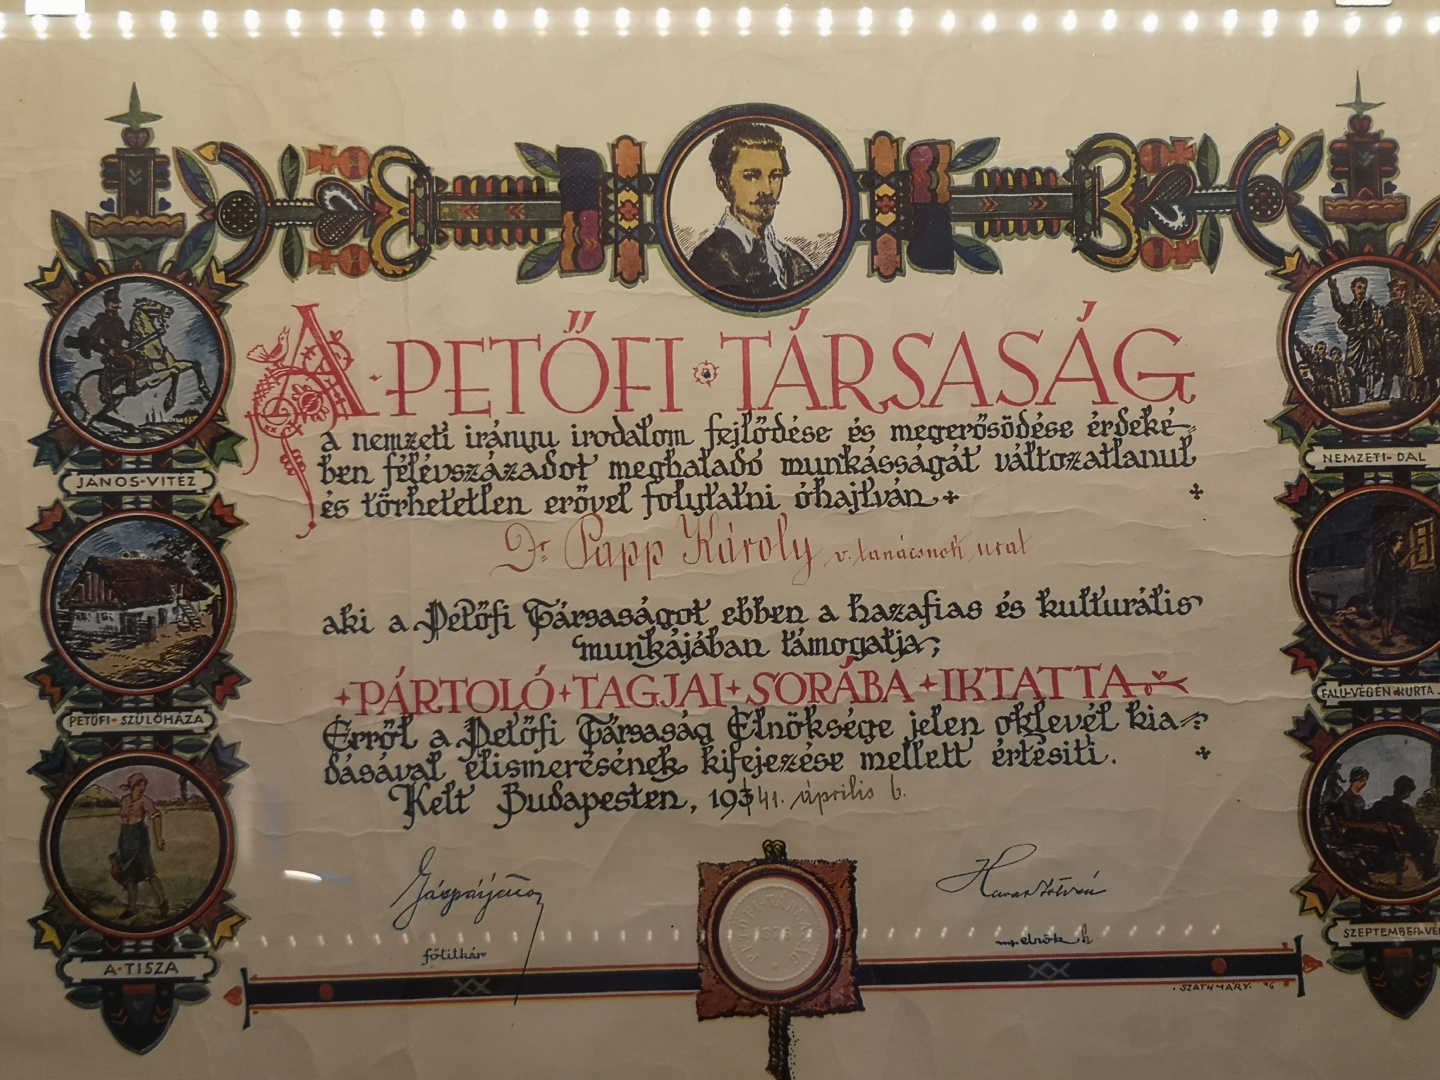 A · PETŐFI · TÁRSASÁG
a nemzeti irányu irodalom fejlődése és megerősödése érdeké-
ben félévszázadot meghaladó munkásságát változatlanul
és törhetetlen erővel folytatni óhajtván
Dr Papp Károly v. tanácsnok urat
aki a Petőfi Társaságot ebben a hazafias és kulturális
munkájában támogatja;
PÁRTOLÓ TAGJAI SORÁBA IKTATTA
Erről a Petőfi Társaság Elnöksége jelen oklevél kia-
dásával elismerésének kifejezése mellett értesiti.
Kelt Budapesten, 1941. április 6.
főtitkár
elnök h
JÁNOS-VITÉZ
PETŐFI-SZÜLŐHÁZA
A·TISZA
NEMZETI-DAL
FALU-VÉGÉN-KURTA
SZEPTEMBER-VÉ
PETŐFI-TÁRSASÁG
1876
SZATHMÁRY